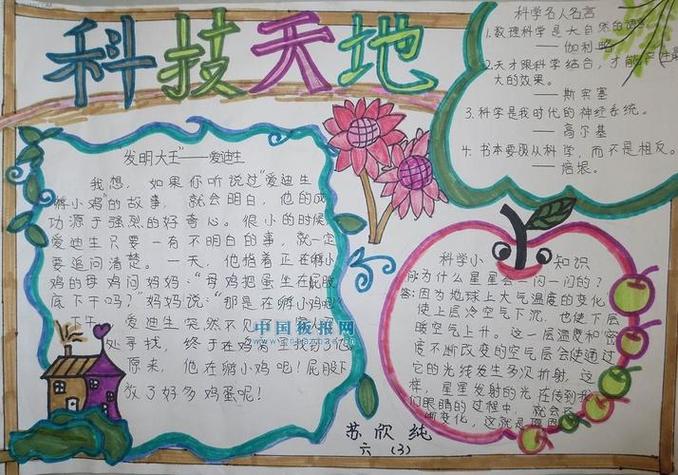 科技天地
"发明大王"——爱迪生
我想，如果你听说过"爱迪生
孵小鸡"的故事，就会明白，他的成
功源于强烈的好奇心。很小的时候
爱迪生只要一有不明白的事，就一定
要追问清楚。一天，他指着正在孵小
鸡的母鸡问妈妈："母鸡把蛋坐在屁股
底下干吗？"妈妈说："那是在孵小鸡呢！
下午，爱迪生突然不见
处寻找，终于在鸡窝里找到了他
原来，他在孵小鸡呢！屁股下
放了好多鸡蛋呢！
中国板报网
科学名人名言
1.数理科学是大自然的语
——伽利略
2.天才跟科学结合，才能产生最
大的效果。
——斯宾塞
3.科学是我时代的神经系统。
——高尔基
4.书本要吸从科学，而不是相反。
——培根。
科学小知识
问为什么星星会一闪一闪的？
答：因为地球上大气温度的变化
使上层冷空气下沉，也使下层
暖空气上升。这一层温度和密
度不断改变的空气层会使通过
它的光线发生多次折射，这
样，星星发射的光在传到我
们眼睛的过程中，就会
断变化，这就是原因
苏欣纯
六（3）